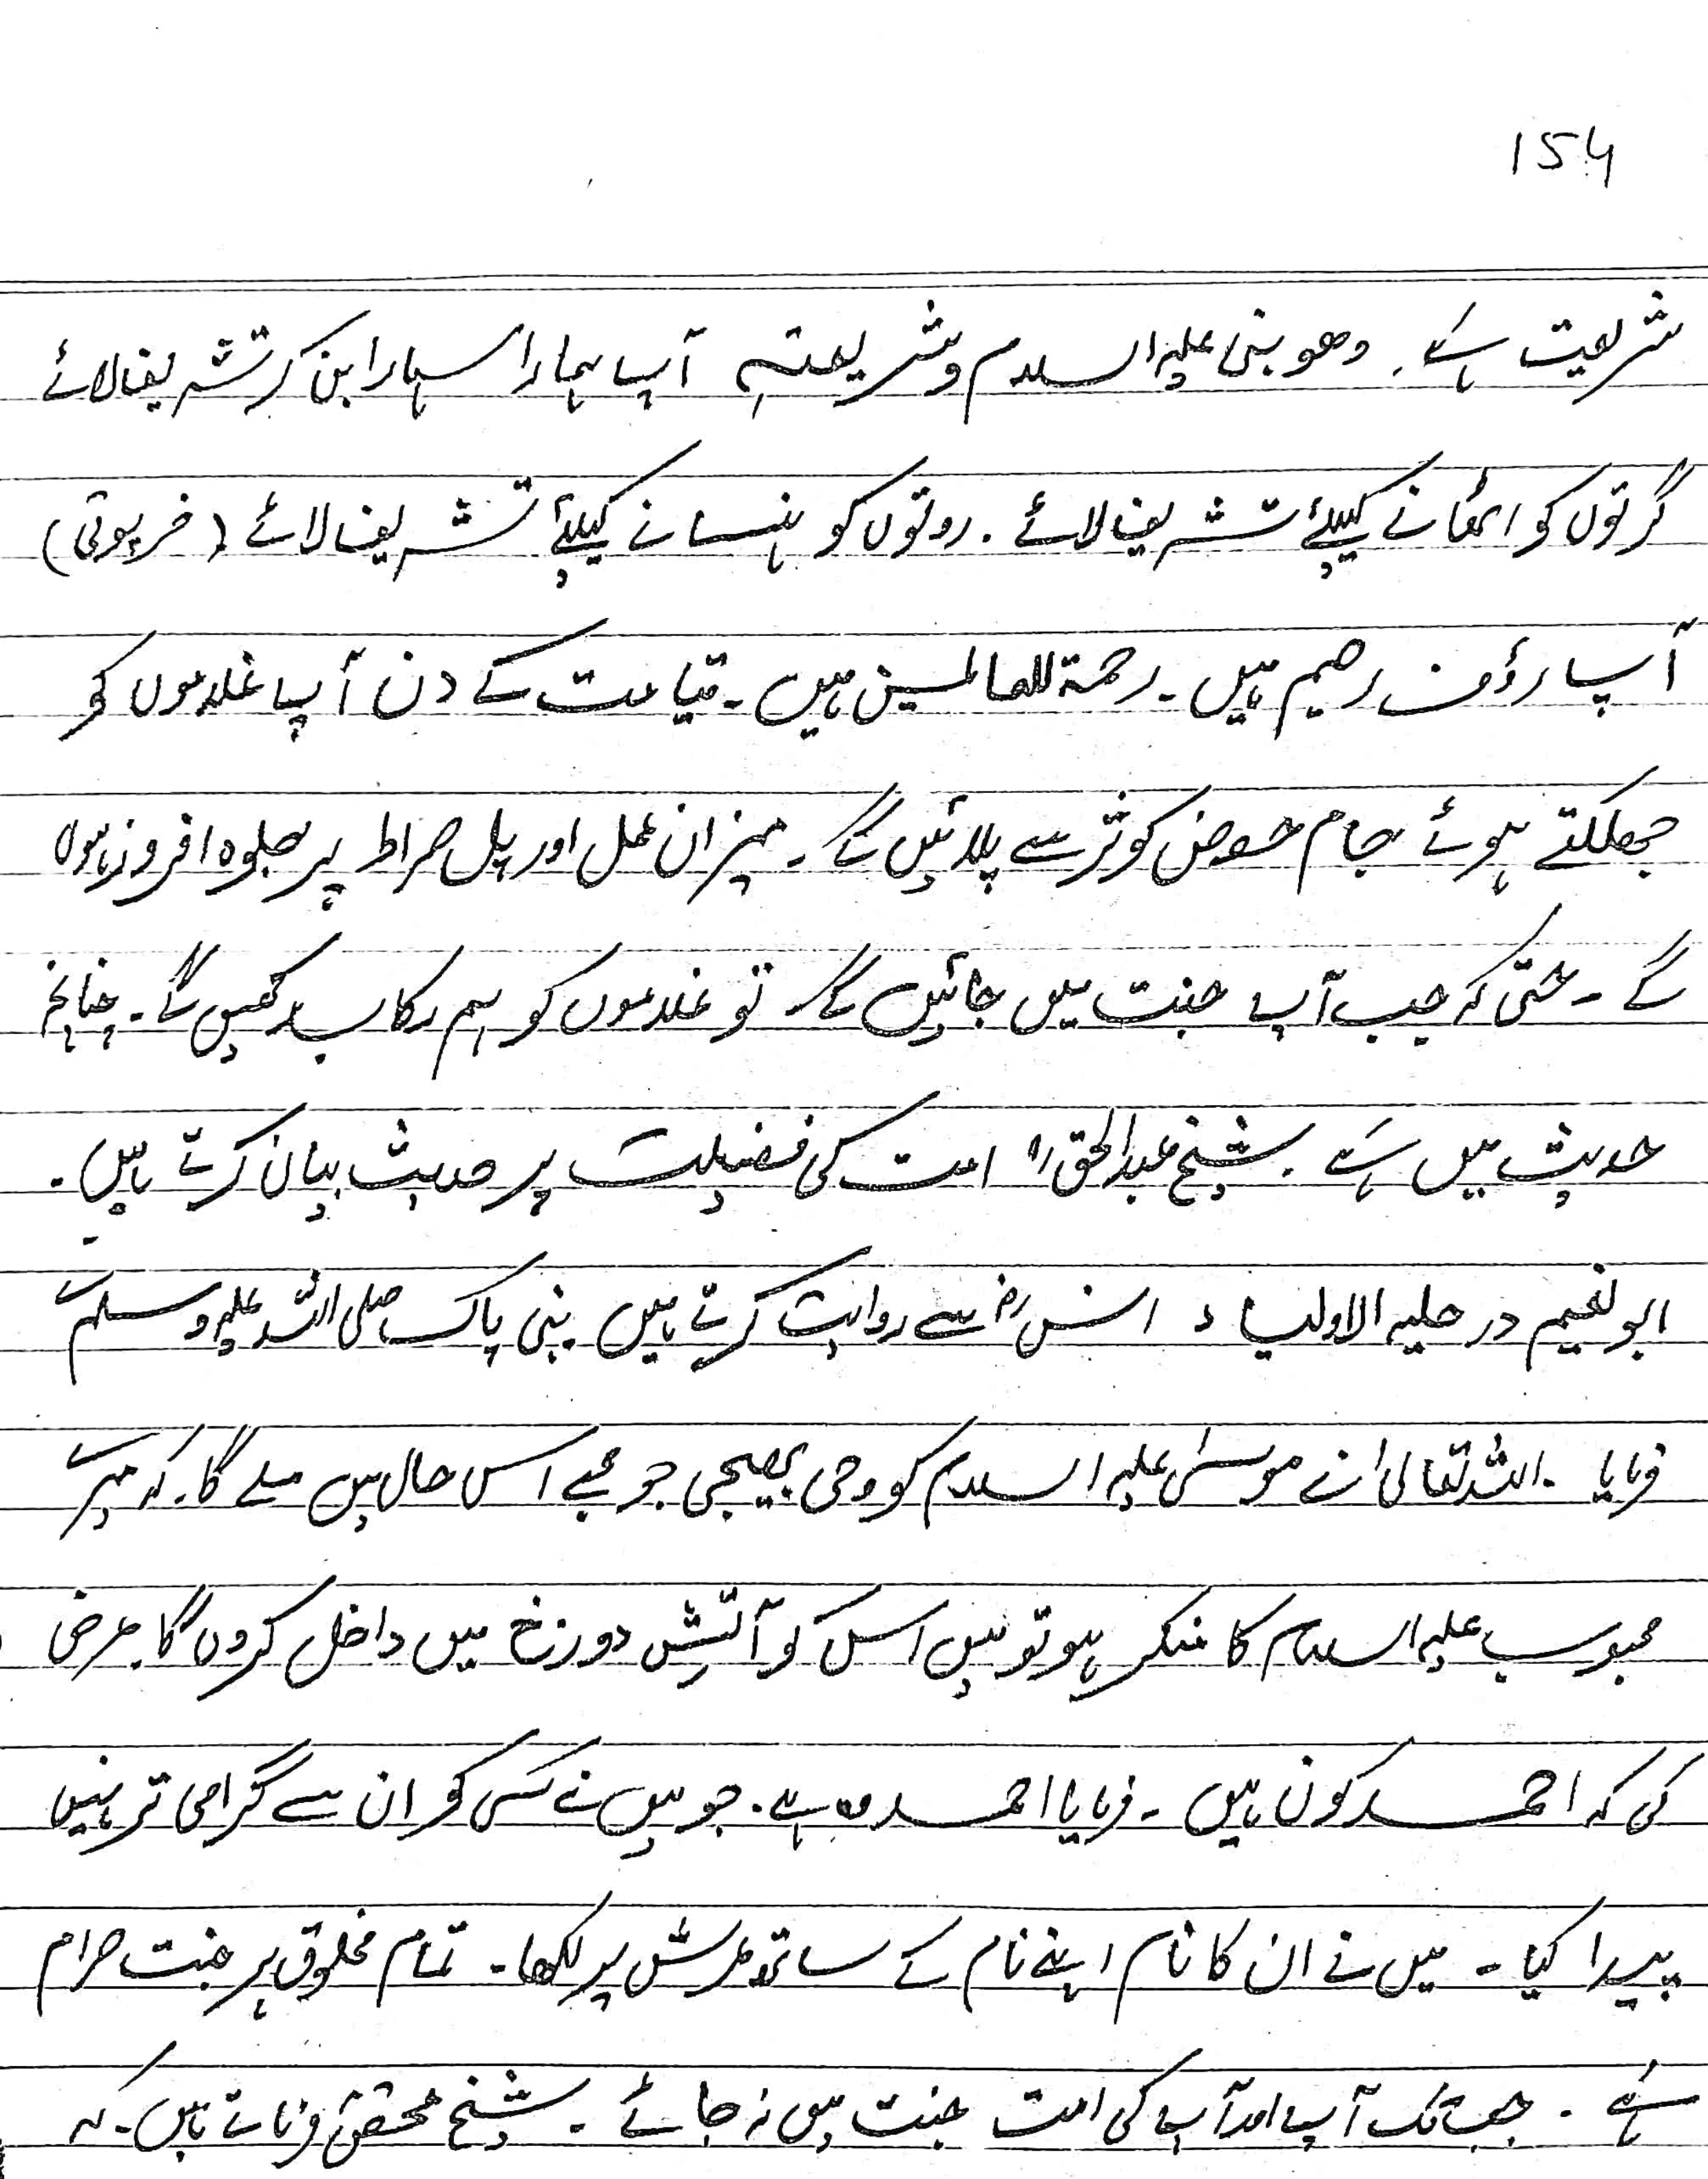 154
شریعت ہے۔ وھو نبی علیہ السلام وشریعتہ آپ ہمارا سہارا بن کر تشریف لائے
گرتوں کو اٹھانے کیلئے تشریف لائے۔ روتوں کو ہنسانے کیلئے تشریف لائے (خرپوتی)
آپ رؤف رحیم ہیں۔ رحمۃ للعالمین ہیں۔ قیامت کے دن آپ غلاموں کو
چھلکتے ہوئے جام حوض کوثر سے پلائیں گے۔ میزان عمل اور پل صراط پر جلوہ افروز ہوں
گے۔ حتی کہ جب آپ جنت میں جائیں گے۔ تو غلاموں کو ہم رکاب رکھیں گے۔ چنانچہ
حدیث میں ہے۔ شیخ عبدالحق رح امت کی فضیلت پر حدیث بیان کرتے ہیں۔
ابو نعیم در حلیہ الاولیاء انس رض سے روایت کرتے ہیں نبی پاک صلی اللہ علیہ وسلم نے
فرمایا۔ اللہ تعالیٰ نے موسیٰ علیہ السلام کو وحی بھیجی جو مجھے اس حال میں ملے گا۔ کہ میرے
محبوب علیہ السلام کا منکر ہو تو میں اس کو آتش دوزخ میں داخل کروں گا۔ عرض
کی کہ احمد کون ہیں۔ فرمایا احمد وہ ہے۔ جو میں نے کسی کو ان سے گرامی تر نہیں
پیدا کیا۔ میں نے ان کا نام اپنے نام کے ساتھ عرش پر لکھا۔ تمام مخلوق پر جنت حرام
ہے۔ جب تک آپ اور آپ کی امت جنت میں نہ جائے۔ شیخ محقق فرماتے ہیں۔ کہ